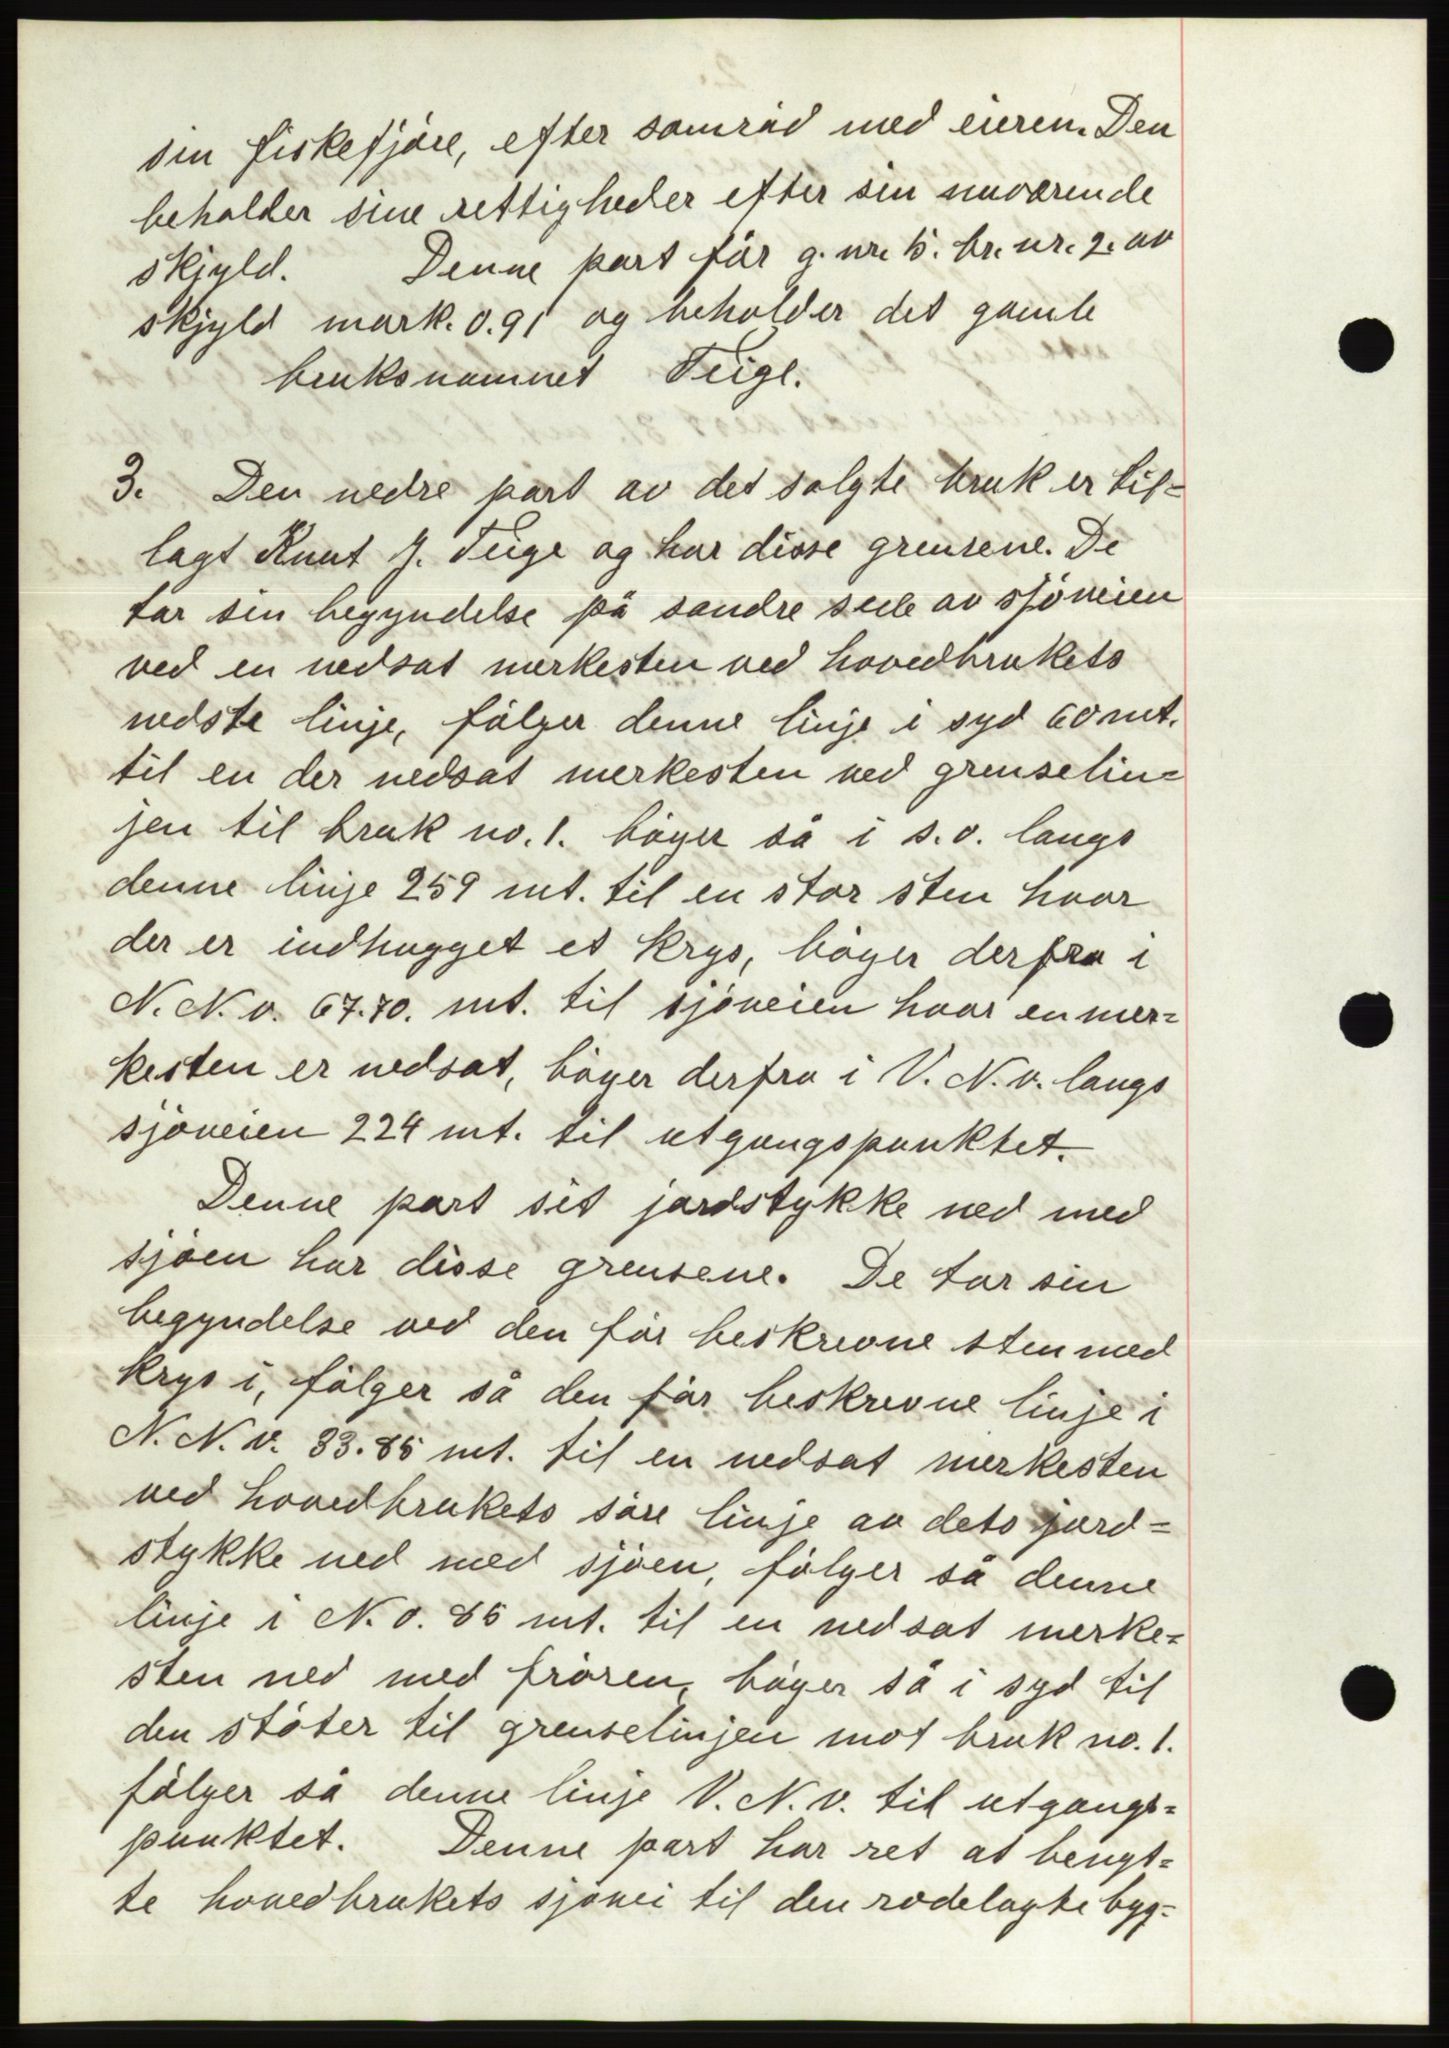 sin fiskefjöre, efter samråd med eieren. Den
beholder sine rettigheder efter sin nuværende
skjyld. Denne part får g. nr. 5. br. nr. 2. av
skjyld mark. 0.91 og beholder det gamle
bruksnamnet Teige.
3. Den nedre part av det solgte bruk er til=
lagt Knut J. Teige og har disse grensene. De
tar sin begyndelse på søndre side av sjöveien
ved en nedsat merkesten ved hovedbrukets
nedste linje, fölger denne linje i syd 60 mt.
til en der nedsat merkesten ved grenselin=
jen til bruk no. 1. böyer så i s. o. langs
denne linje 259 mt. til en stor sten hvor
der er indhugget et krys, böyer derfra i
N. N. v. 67.70. mt. til sjöveien hvor en mer=
kesten er nedsat, böyer derfra i V. N. v. langs
sjöveien 224 mt. til utgangspunktet.
Denne part sit jordstykke ned med
sjöen har disse grensene. De tar sin
begyndelse ved den för beskrevne sten med
krys i, fölger så den för beskrevne linje i
N. N. v. 83.85 mt. til en nedsat merkesten
ved hovedbrukets söre linje av dets jord=
stykke ned med sjöen, fölger så denne
linje i N. o. 85 mt. til en nedsat merke=
sten ned med fjören, böyer så i syd til
den stöter til grenselinjen mot bruk no. 1.
fölger så denne linje V. N. v. til utgangs=
punktet. Denne part har ret at benyt=
te hovedbrukets sjövei til den rodelagte byg=